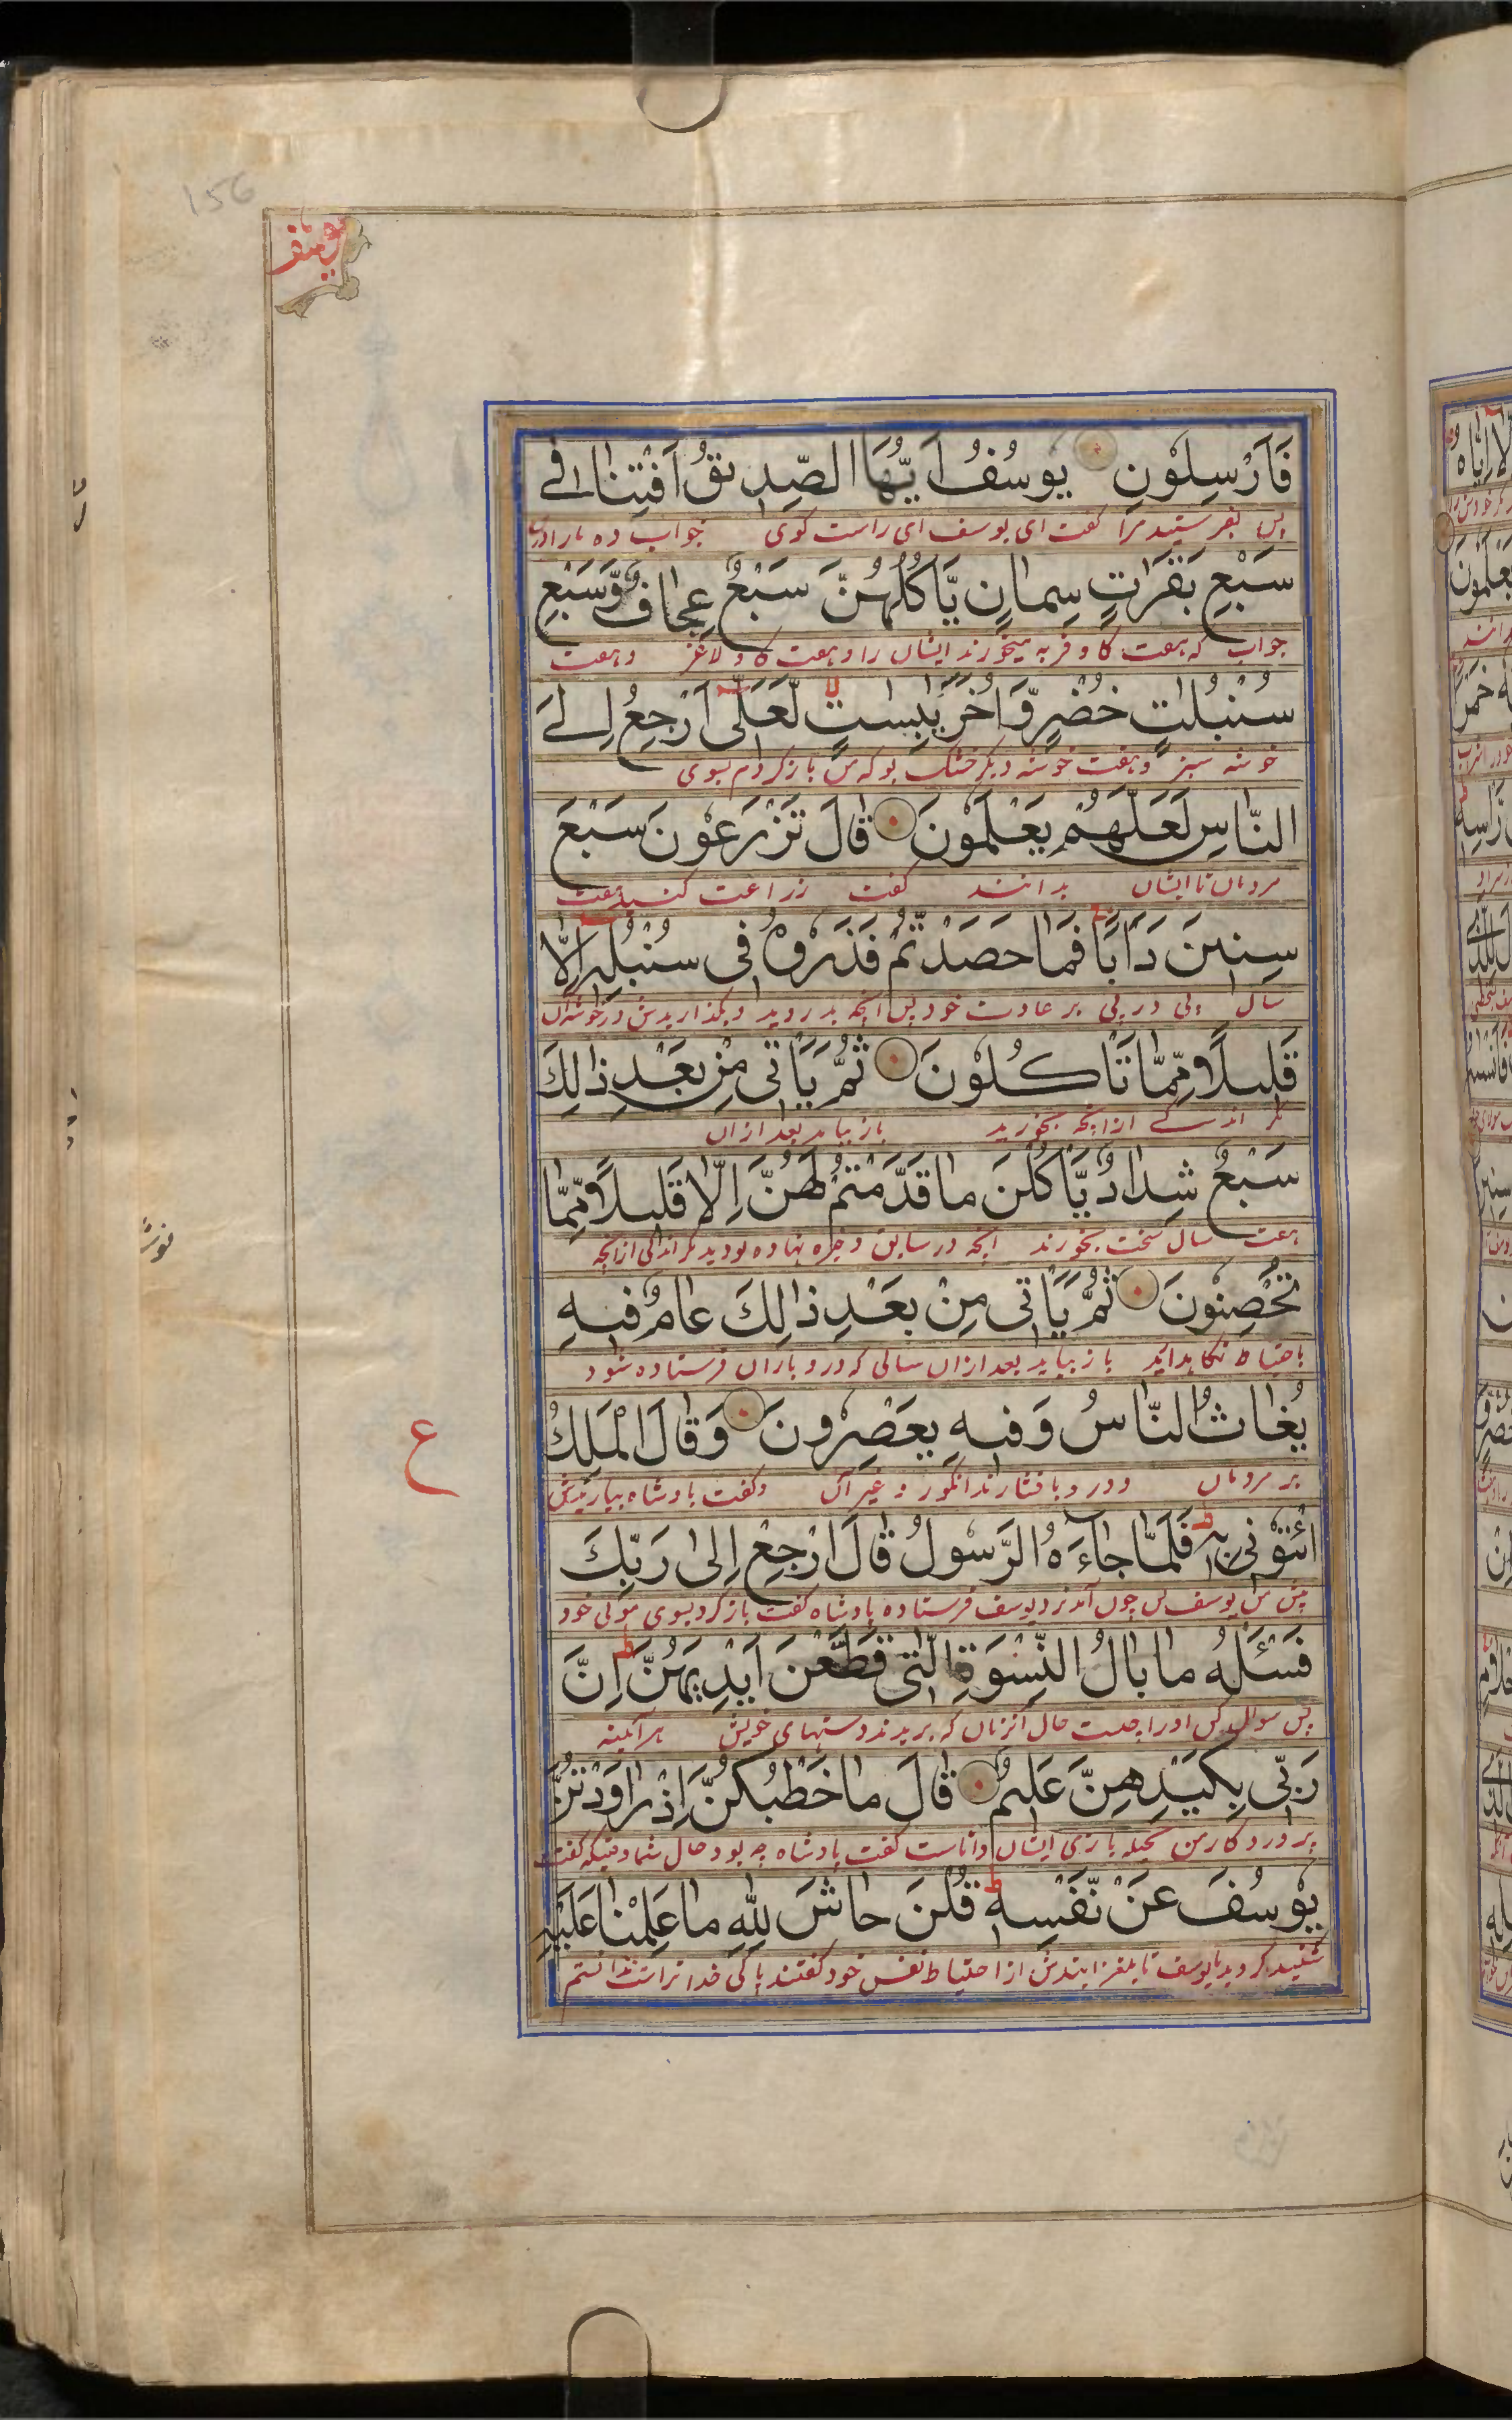 156
يوسف
فَاَرْسِلُوْنِ يُوْسُفُ اَيُّهَا الصِّدِيْقُ اَفْتِنَا فِيْ
پس بفرستید مرا گفت ای یوسف ای راست کوی جواب ده مارا در
سَبْعِ بَقَرٰتٍ سِمَانٍ يَّاْكُلُهُنَّ سَبْعٌ عِجَافٌ وَّسَبْعِ
جواب که هفت کاو فربه میخورند ایشان را هفت کاو لاغر و هفت
سُنْبُلٰتٍ خُضْرٍ وَّاُخَرَ يٰبِسٰتٍ لَّعَلِّيْٓ اَرْجِعُ اِلَى
خوشه سبز و هفت خوشه دیکر خشک بو که من بازکردم بسوی
النَّاسِ لَعَلَّهُمْ يَعْلَمُوْنَ قَالَ تَزْرَعُوْنَ سَبْعَ
مردمان تا ایشان بدانند گفت زراعت کنید هفت
سِنِيْنَ دَاَبًا فَمَا حَصَدْتُّمْ فَذَرُوْهُ فِيْ سُنْبُلِهٖٓ اِلَّا
سال پی در پی بر عادت خود پس انچه بدروید بگذاریدش در خوشه آن
قَلِيْلًا مِّمَّا تَاْكُلُوْنَ ثُمَّ يَاْتِيْ مِنْ بَعْدِ ذٰلِكَ
مکر اندکے ازانچه بخورید باز بیاید بعد ازان
سَبْعٌ شِدَادٌ يَّاْكُلْنَ مَا قَدَّمْتُمْ لَهُنَّ اِلَّا قَلِيْلًا مِّمَّا
هفت سال سخت بخورند انچه در سابق ذخیره نهاده بودید مکر اندکی ازانچه
تُحْصِنُوْنَ ثُمَّ يَاْتِيْ مِنْ بَعْدِ ذٰلِكَ عَامٌ فِيْهِ
باحتیاط نکاهدارید باز بیاید بعد ازان سالی که درو باران فرستاده شود
يُغَاثُ النَّاسُ وَفِيْهِ يَعْصِرُوْنَ وَقَالَ الْمَلِكُ
بر مردمان و درو بافشارند انکور و غیر آن و گفت بادشاه بیاریدش
ع
ائْتُوْنِيْ بِهٖ فَلَمَّا جَآءَهُ الرَّسُوْلُ قَالَ ارْجِعْ اِلٰى رَبِّكَ
پیش من یوسف پس چون آمد نزد یوسف فرستاده بادشاه گفت بازکرد بسوی مولی خود
فَسْئَلْهُ مَا بَالُ النِّسْوَةِ الّٰتِيْ قَطَّعْنَ اَيْدِيَهُنَّ اِنَّ
پس سوال کن اورا چیست حال آنزنان که بریدند دستهای خویش هر آئینه
رَبِّيْ بِكَيْدِهِنَّ عَلِيْمٌ قَالَ مَا خَطْبُكُنَّ اِذْ رَاوَدْتُّنَّ
پروردکار من بحیله بازی ایشان داناست گفت بادشاه چه بود حال شما وقتیکه گفت
يُوْسُفَ عَنْ نَّفْسِهٖ قُلْنَ حَاشَ لِلّٰهِ مَا عَلِمْنَا عَلَيْهِ
شنید کردید با یوسف تا بلغزانیدش از احتیاط نفس خود گفتند پاکی خدا راست ندانستم